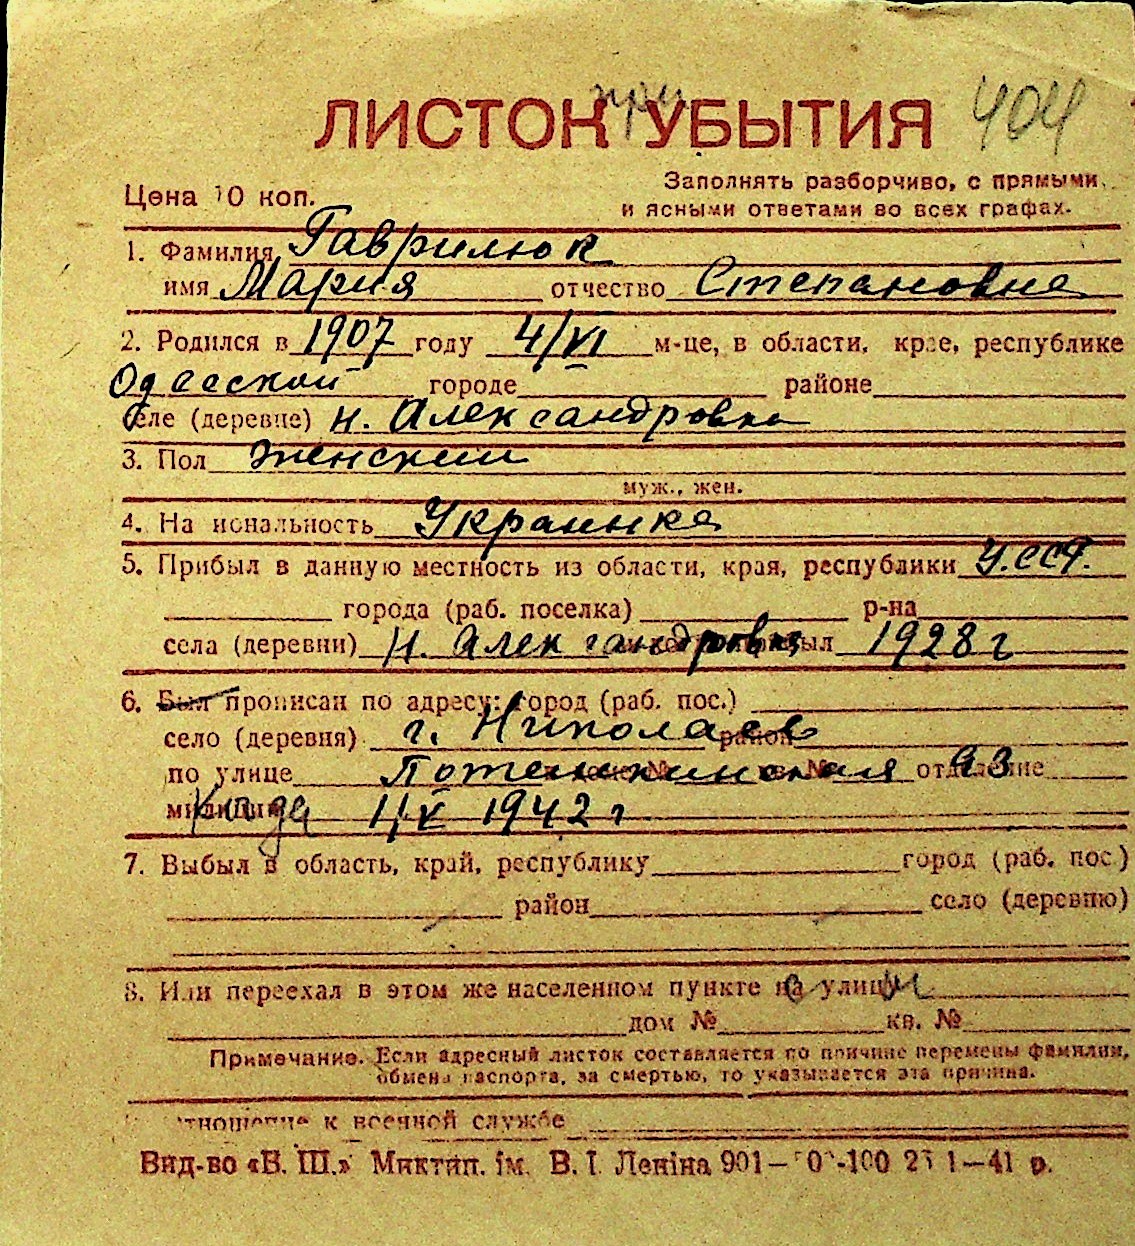 при 404
ЛИСТОК УБЫТИЯ
Цена 10 коп. Заполнять разборчиво, с прямыми
и ясными ответами во всех графах.
1. Фамилия Гаврилюк
имя Мария отчество Степановна
2. Родился в 1907 году 4/VI м-це, в области, крае, республике
Одесской городе районе
селе (деревне) Н. Александровка
3. Пол женский
муж., жен.
4. Национальность Украинка
5. Прибыл в данную местность из области, края, республики У.ССР.
города (раб. поселка) р-на
села (деревни) Н. Александровка 1928 г
6. Был прописан по адресу: город (раб. пос.)
село (деревня) г. Николаев район
по улице Потемкинская 93 отделение
милиции Когда 1/V 1942 г
7. Выбыл в область, край, республику город (раб. пос.)
район село (деревню)
8. Или переехал в этом же населенном пункте на улицу
дом № кв. №
Примечание. Если адресный листок составляется по причине перемены фамилии,
обмена паспорта, за смертью, то указывается эта причина.
тношение к военной службе
Вид-во «Б. Ш.» Миктип. ім. В. І. Леніна 901— 1—41 р.